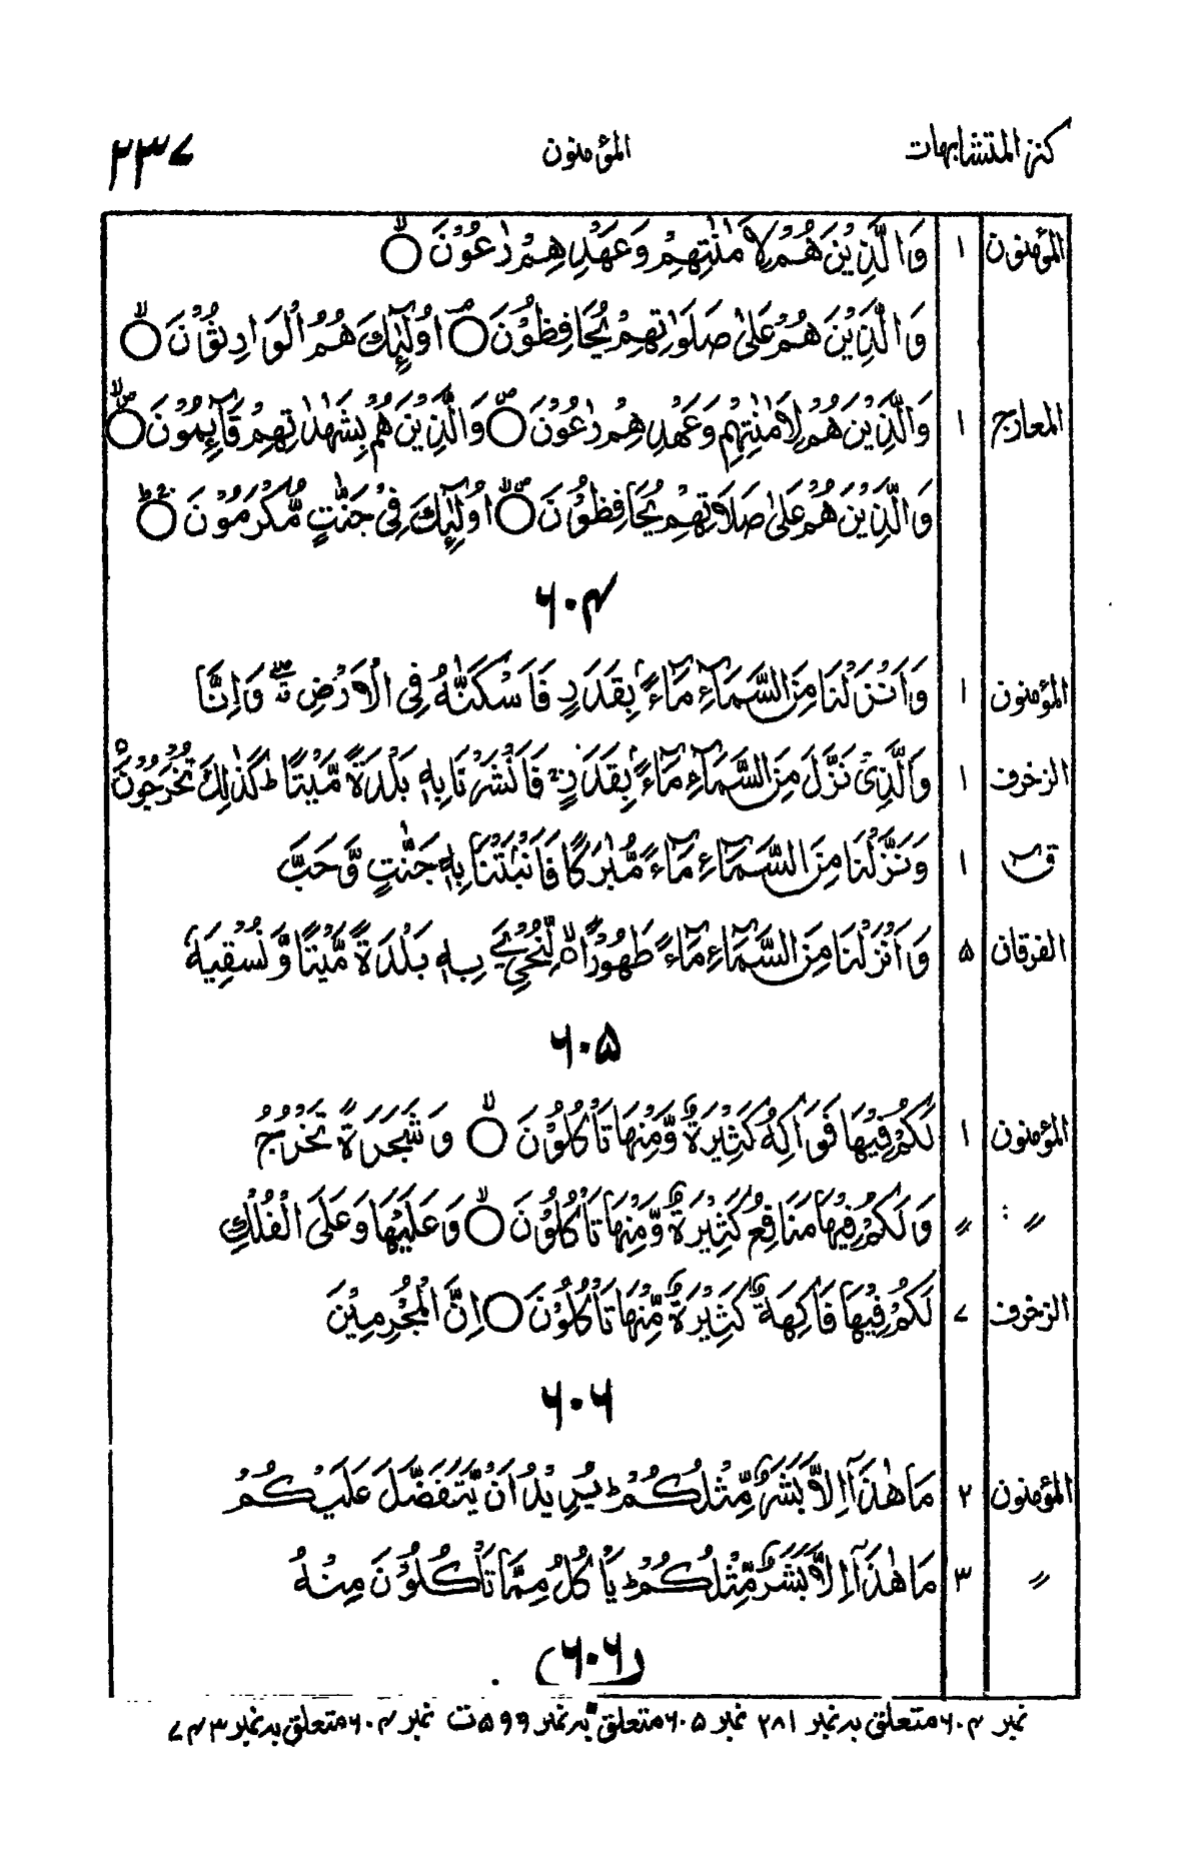 كنز المتشابهات المؤمنون ۲۳۷
المؤمنون ۱ وَالَّذِيْنَ هُمْ لِاَمٰنٰتِهِمْ وَعَهْدِهِمْ رٰعُوْنَ ○ۙ
وَالَّذِيْنَ هُمْ عَلٰى صَلَوٰتِهِمْ يُحَافِظُوْنَ ○ۘ اُولٰٓئِكَ هُمُ الْوَارِثُوْنَ ○ۙ
المعارج ۱ وَالَّذِيْنَ هُمْ لِاَمٰنٰتِهِمْ وَعَهْدِهِمْ رٰعُوْنَ ○ۙ وَالَّذِيْنَ هُمْ بِشَهٰدٰتِهِمْ قَآئِمُوْنَ ○ۙ
وَالَّذِيْنَ هُمْ عَلٰى صَلَاتِهِمْ يُحَافِظُوْنَ ○ اُولٰٓئِكَ فِىْ جَنّٰتٍ مُّكْرَمُوْنَ ○ؕ
۶۰۴
المؤمنون ۱ وَاَنْزَلْنَا مِنَ السَّمَآءِ مَآءًۢ بِقَدَرٍ فَاَسْكَنّٰهُ فِى الْاَرْضِ ۖ وَاِنَّا
الزخرف ۱ وَالَّذِىْ نَزَّلَ مِنَ السَّمَآءِ مَآءًۢ بِقَدَرٍۚ فَاَنْشَرْنَا بِهٖ بَلْدَةً مَّيْتًا ۚ كَذٰلِكَ تُخْرَجُوْنَ ○
قٓ ۱ وَنَزَّلْنَا مِنَ السَّمَآءِ مَآءً مُّبٰرَكًا فَاَنْۢبَتْنَا بِهٖ جَنّٰتٍ وَّحَبَّ
الفرقان ۵ وَاَنْزَلْنَا مِنَ السَّمَآءِ مَآءً طَهُوْرًا ۙ لِّنُحْيِۦَ بِهٖ بَلْدَةً مَّيْتًا وَّنُسْقِيَهٗ
۶۰۵
المؤمنون ۱ لَكُمْ فِيْهَا فَوَاكِهُ كَثِيْرَةٌ وَّمِنْهَا تَاْكُلُوْنَ ○ۙ وَشَجَرَةً تَخْرُجُ
〃 〃 وَلَكُمْ فِيْهَا مَنَافِعُ كَثِيْرَةٌ وَّمِنْهَا تَاْكُلُوْنَ ○ۙ وَعَلَيْهَا وَعَلَى الْفُلْكِ
الزخرف ۷ لَكُمْ فِيْهَا فَاكِهَةٌ كَثِيْرَةٌ مِّنْهَا تَاْكُلُوْنَ ○ اِنَّ الْمُجْرِمِيْنَ
۶۰۶
المؤمنون ۲ مَا هٰذَآ اِلَّا بَشَرٌ مِّثْلُكُمْ ۙ يُرِيْدُ اَنْ يَّتَفَضَّلَ عَلَيْكُمْ
〃 ۳ مَا هٰذَآ اِلَّا بَشَرٌ مِّثْلُكُمْ ۙ يَاْكُلُ مِمَّا تَاْكُلُوْنَ مِنْهُ
(۶۰۶)
نمبر ۶۰۴ متعلق بہ نمبر ۲۸۱ نمبر ۶۰۵ متعلق بہ نمبر ۵۹۹ ت نمبر ۶۰۴ متعلق بہ نمبر ۷۴۳